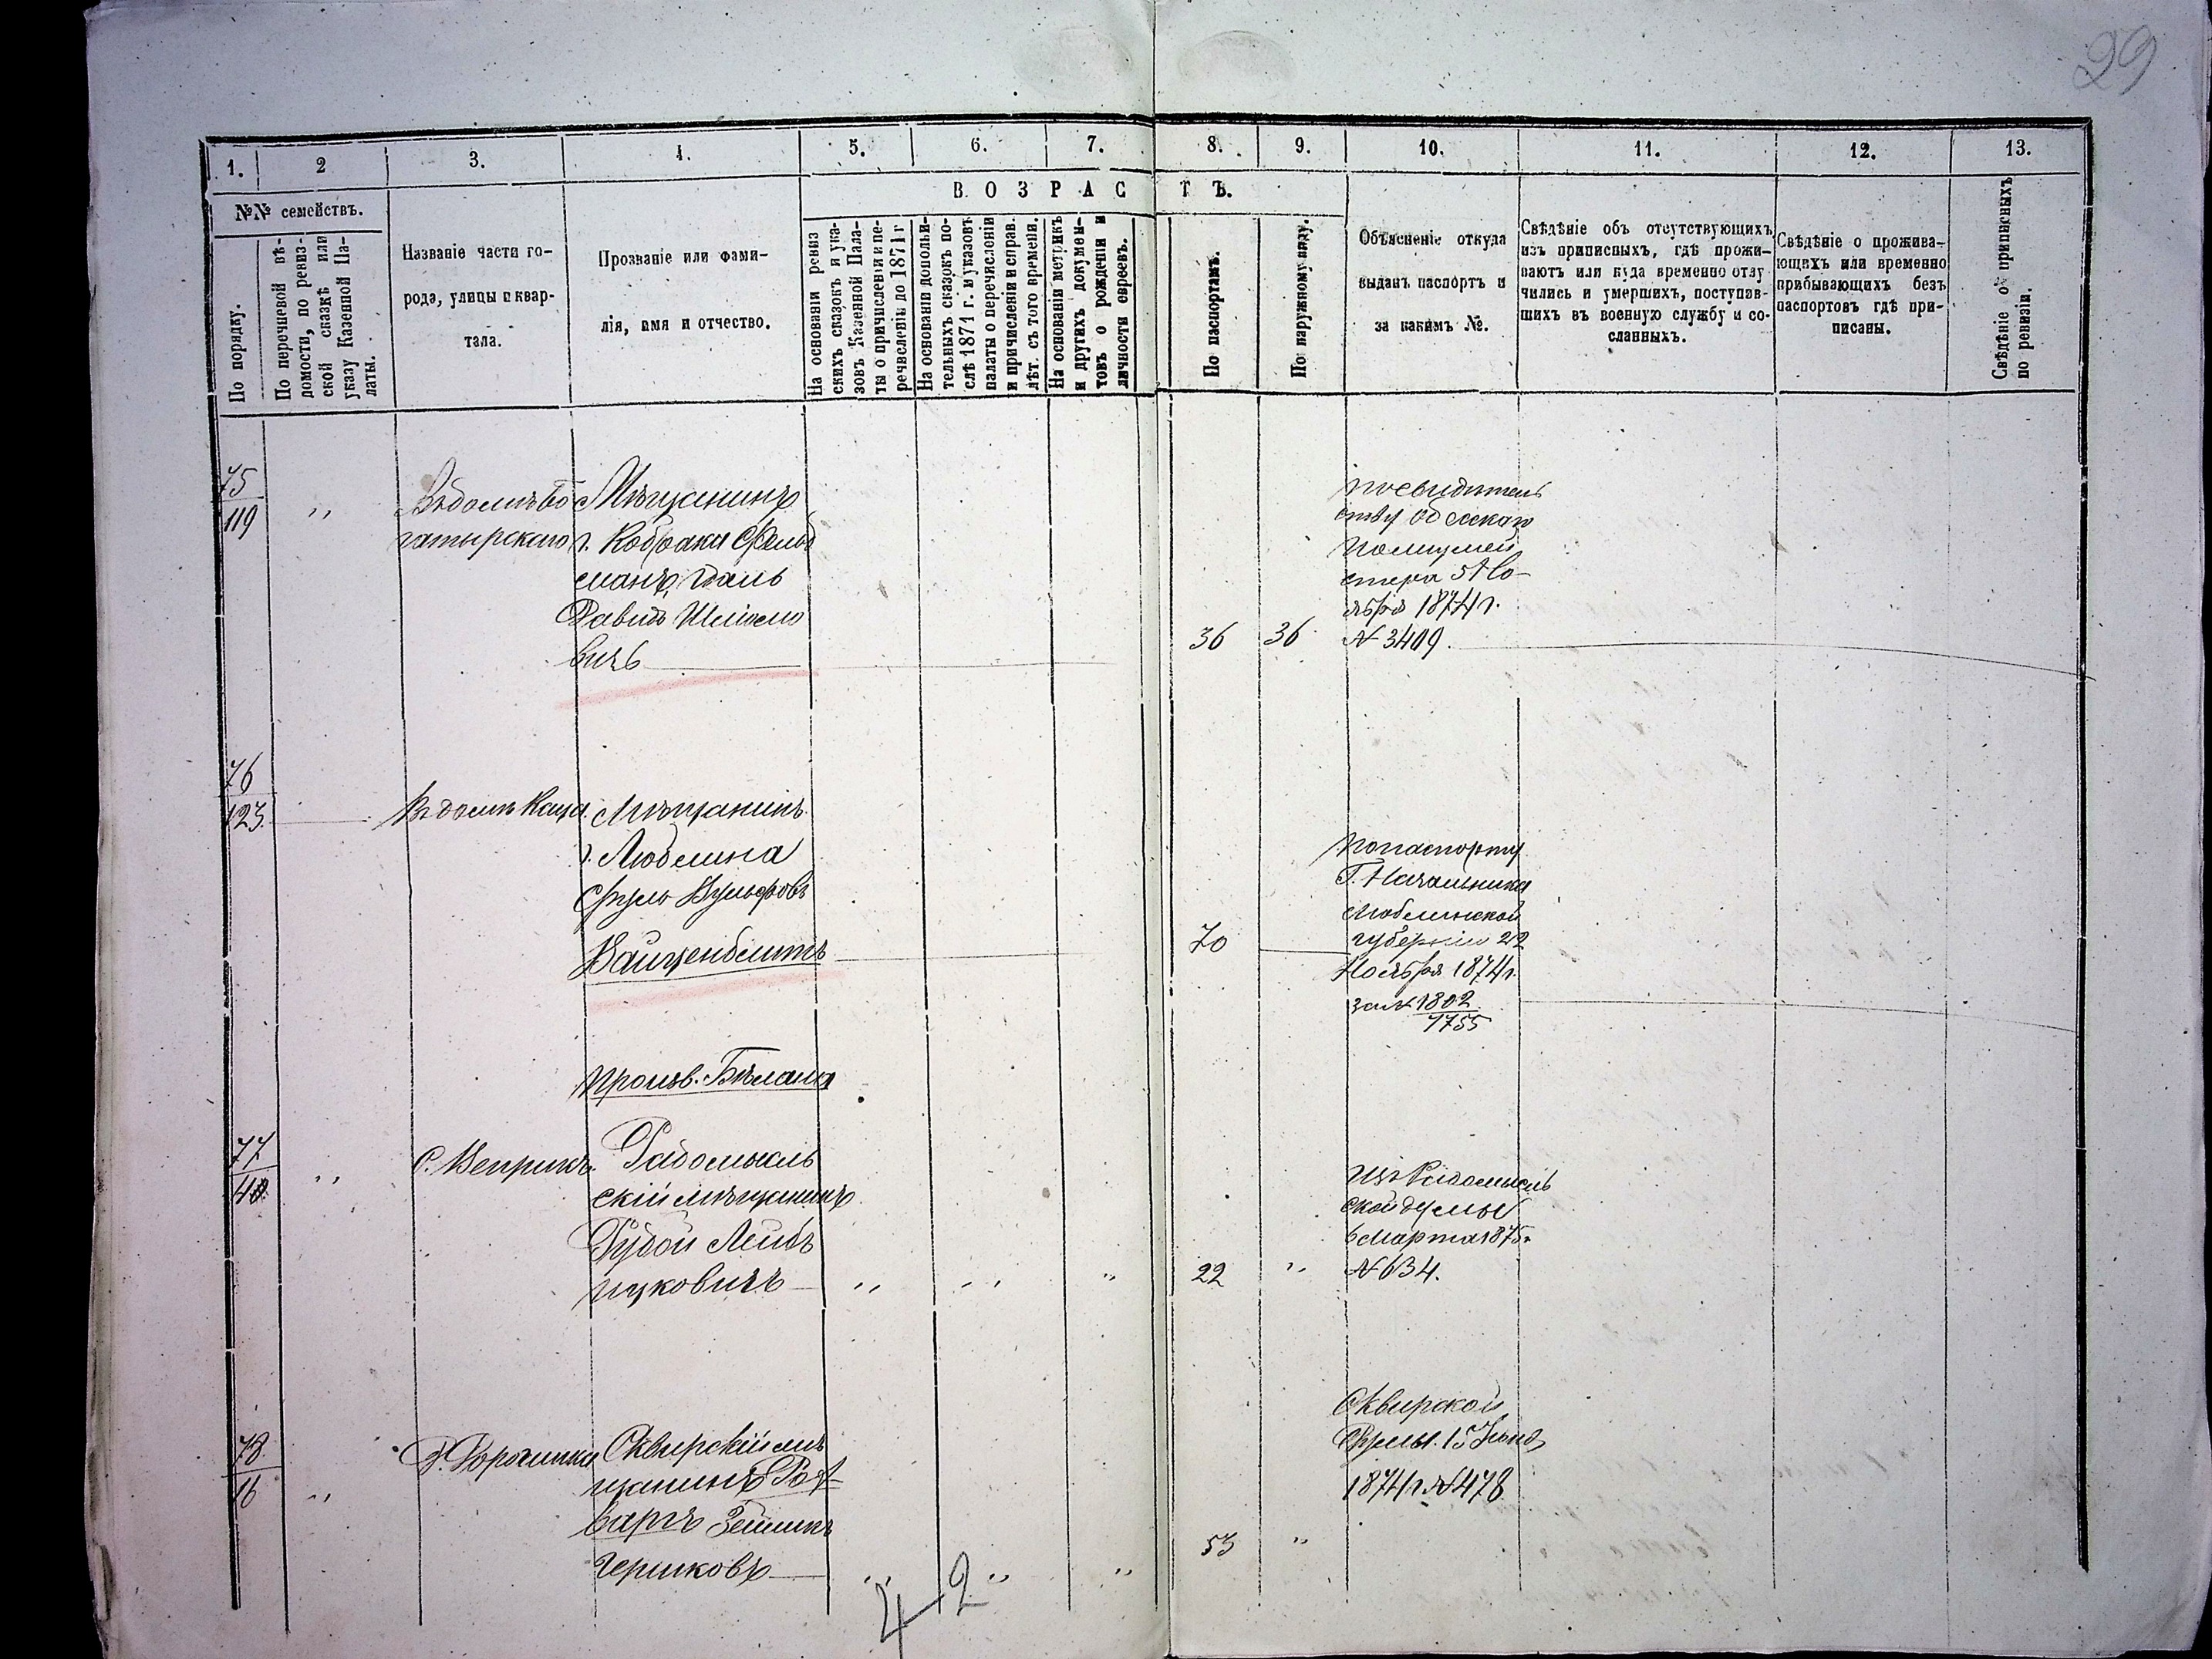 29
1. 2 3. 4. 5. 6. 7. 8. 9. 10. 11. 12. 13.
№№ семействъ.
ВОЗРАСТЪ.
По порядку.
По перечневой вѣ-
домости, по ревиз-
ской сказкѣ или
указу Казенной Па-
латы.
Названіе части го-
рода, улицы и квар-
тала.
Прозваніе или фами-
лія, имя и отчество.
На основаніи ревиз
скихъ сказокъ и ука-
зовъ Казенной Пала-
ты о причисленіи и пе-
речисленіи до 1871 г
На основаніи дополни-
тельныхъ сказокъ по-
слѣ 1871 г. и указовъ
палаты о перечисленіи
и причисленіи и справ.
лѣт. съ того времени.
На основаніи метрикъ
и другихъ докумен-
товъ о рожденіи и
личности евреевъ.
По паспортамъ.
По наружному виду.
Объясненіе откуда
выданъ паспортъ и
за какимъ №.
Свѣдѣніе объ отсутствующихъ
изъ приписныхъ, гдѣ прожи-
ваютъ или куда временно отлу
чились и умершихъ, поступив-
шихъ въ военную службу и со-
сланныхъ.
Свѣдѣніе о прожива-
ющихъ или временно
прибывающихъ безъ
паспортовъ гдѣ при-
писаны.
Свѣдѣніе о приписныхъ
по ревизіи.
75
119
Въ домѣ Бо
гатырскаго
Мѣщанинъ
Давидъ Шліомо
вичъ
36 36
По свидѣтель
ству
Полицмей
стера 5 Но-
ября 1874 г.
№ 3409.
76
123.
Въ домѣ Каца.
Мѣщанинъ
г. Люблина
Сруль Вульфовъ
Вайценблитъ
70
По паспорту
Г. Начальника
Люблинской
губерніи 22
Ноября 1874 г.
за № 1802
1755
77
С. Веприкъ.
Радомысль
скій мѣщанинъ
Рудой Лейбъ
Ицковичъ
22
Изъ Радомысль
ской думы
6 Марта 1875 г.
№ 634.
78.
16
Сквирскій мѣ
щанинъ Рот
баргъ
Гершковъ
53
Сквирской
Думы. 15 Іюня
1874 г. № 478
4 2